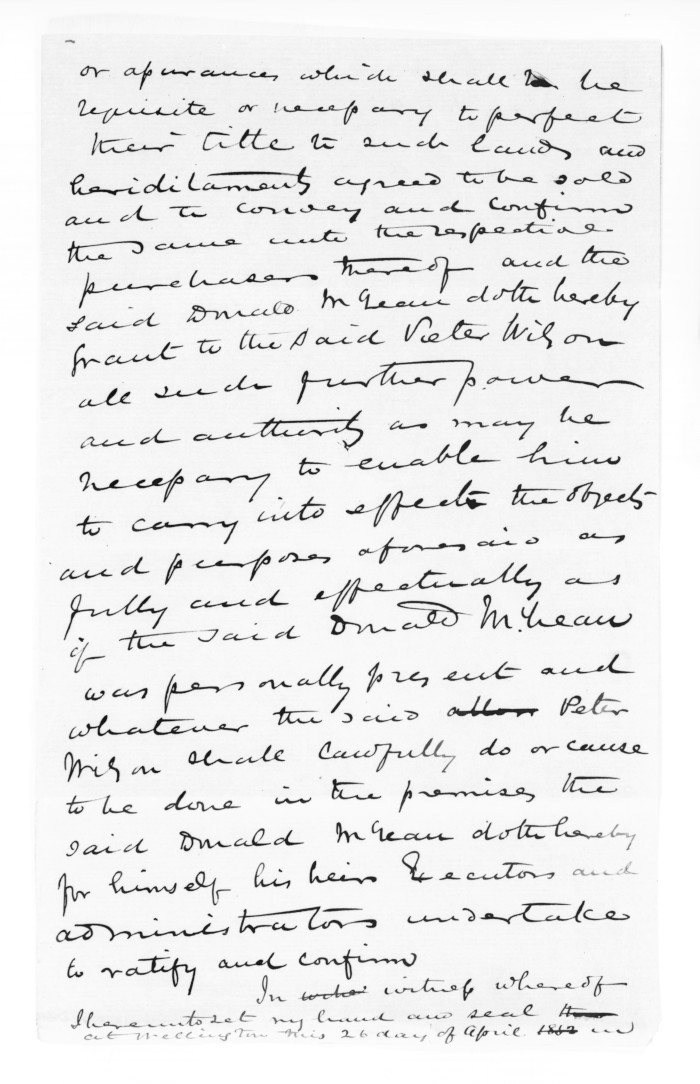 or assurances which shall be
requisite or necessary to perfect
their title to such lands and
heriditaments agreed to be sold
and to convey and confirm
the same unto the respective
purchasers thereof and the
said Donald McLean doth hereby
Grant to the said Peter Wilson
all such further power
and authority as may be
necessary to enable him
to carry into effect the objects
and purposes aforesaid as
fully and effectually as
if the said Donald McLean
was personally present and
whatever the said Peter
Wilson shall lawfully do or cause
to be done in the premises the
said Donald McLean doth hereby
for himself his heirs Executors and
administrators undertake
to ratify and confirm
In witness whereof
I hereunto set my hand and seal
at Wellington this 26 day of April 1862 in